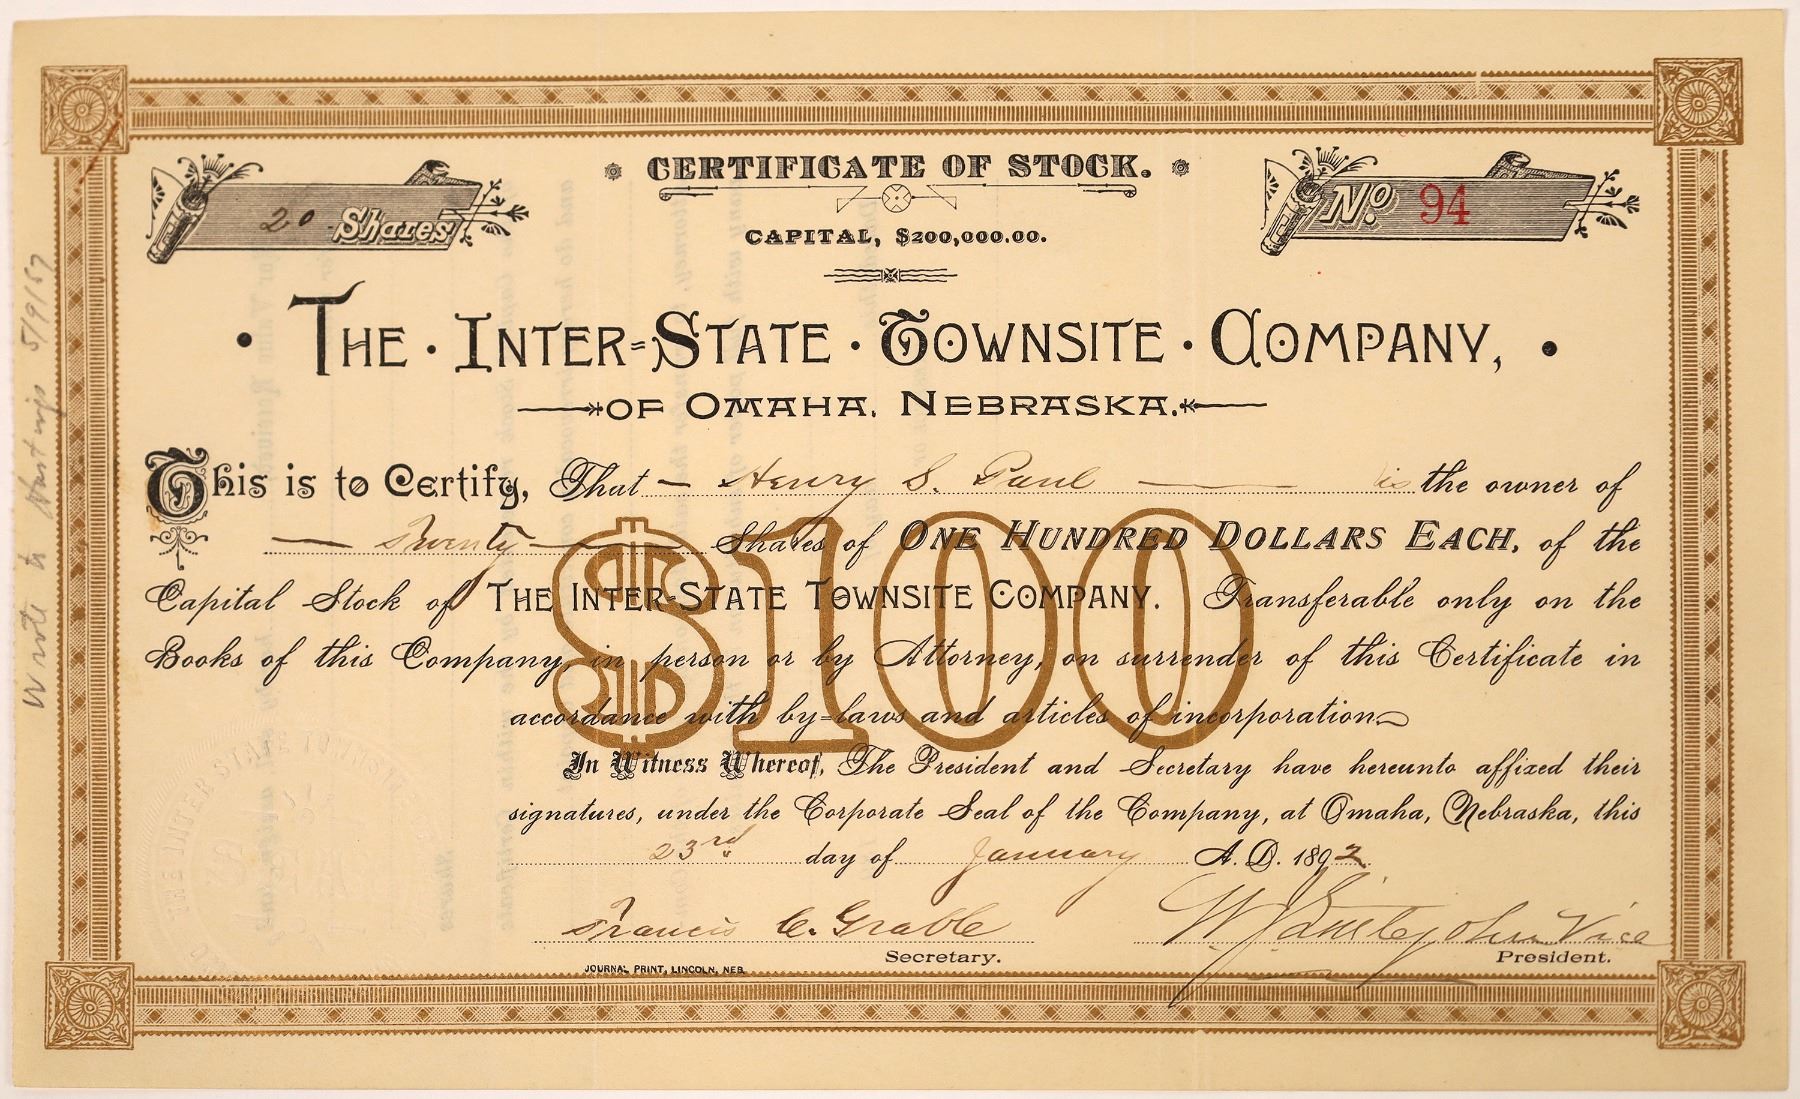 CERTIFICATE OF STOCK.
20 Shares
No. 94
CAPITAL, $200,000.00.
THE · INTER=STATE · TOWNSITE · COMPANY,
OF OMAHA, NEBRASKA.
This is to Certify, That Henry S. Paul is the owner of
Twenty Shares of ONE HUNDRED DOLLARS EACH, of the
Capital Stock of THE INTER-STATE TOWNSITE COMPANY. Transferable only on the
Books of this Company in person or by Attorney, on surrender of this Certificate in
accordance with by=laws and articles of incorporation
$100
In Witness Whereof, The President and Secretary have hereunto affixed their
signatures, under the Corporate Seal of the Company, at Omaha, Nebraska, this
23rd day of January A. D. 1892
Francis C. Grable
Vice
Secretary.
President.
JOURNAL PRINT, LINCOLN, NEB.
Wrote to Hastings 5/9/57
THE INTER STATE TOWNSITE